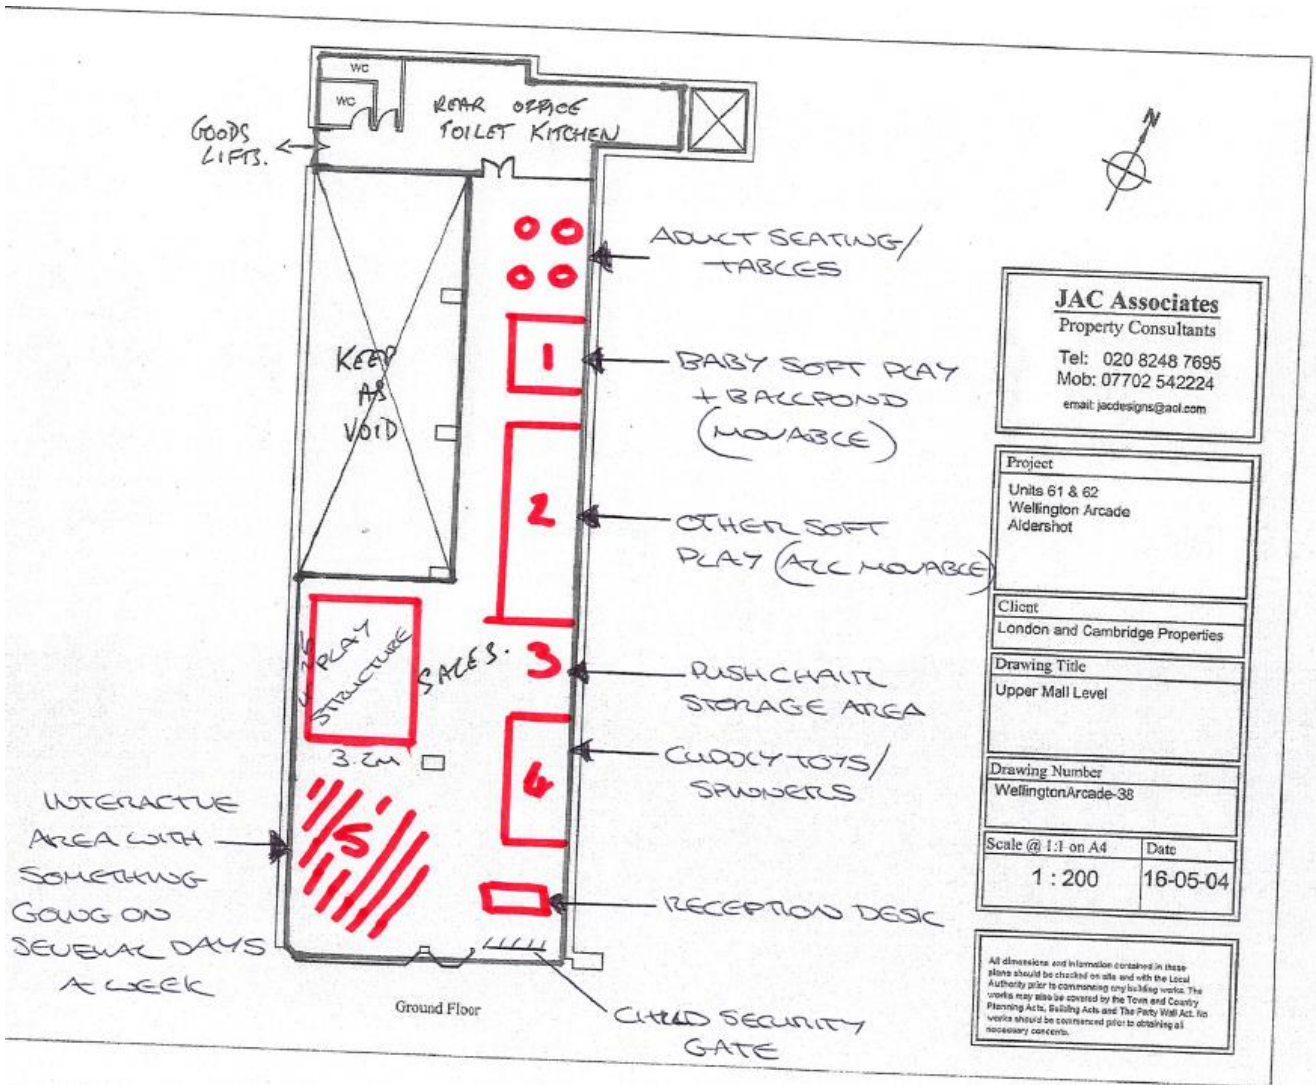 WC
WC
REAR OFFICE
TOILET KITCHEN
GOODS
LIFTS.
N
ADULT SEATING/
TABLES
KEEP
AS
VOID
1
BABY SOFT PLAY
+ BALLPOND
(MOVABLE)
2
OTHER SOFT
PLAY (ALL MOVABLE)
PLAY
STRUCTURE
3.2M
SALES.
3
PUSHCHAIR
STORAGE AREA
4
CUDDLY TOYS/
SPINNERS
5
INTERACTIVE
AREA WITH
SOMETHING
GOING ON
SEVERAL DAYS
A WEEK
RECEPTION DESK
CHILD SECURITY
GATE
Ground Floor
JAC Associates
Property Consultants
Tel: 020 8248 7695
Mob: 07702 542224
email: jacdesigns@aol.com
Project
Units 61 & 62
Wellington Arcade
Aldershot
Client
London and Cambridge Properties
Drawing Title
Upper Mall Level
Drawing Number
WellingtonArcade-38
Scale @ 1:1 on A4
Date
1 : 200
16-05-04
All dimensions and information contained in these
plans should be checked on site and with the Local
Authority prior to commencing any building works. The
works may also be covered by the Town and Country
Planning Acts, Building Acts and The Party Wall Act. No
works should be commenced prior to obtaining all
necessary consents.